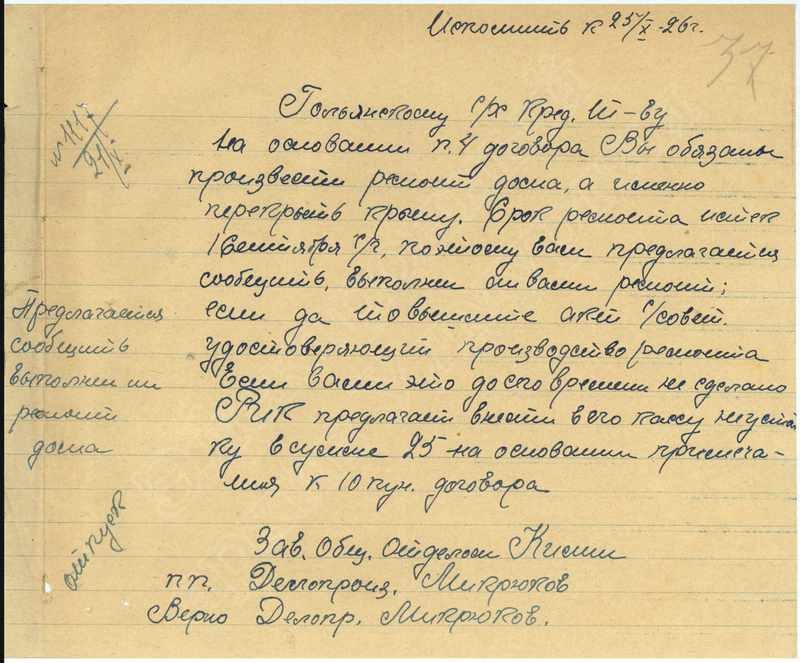 Исполнить к 25/X-26г.
37
№1117
21/X
Гольянскому с/х кред. т-ву
На основании п.4 договора Вы обязаны
произвести ремонт дома, а именно
перекрыть крышу. Срок ремонта истек
1 сентября с/г, поэтому вам предлагается
сообщить, выполнен ли вами ремонт;
если да то вышлите акт с/совет.
удостоверяющий производство ремонта
Если вами это до сго времени не сделано
РИК предлагает внести в его кассу неустой
ку в сумме 25 на основании примеча-
ния к 10 пун. договора
Предлагается
сообщить
выполнен ли
ремонт
дома
отпуск
Зав. Общ. Отделом
пп. Делопроизв. Микрюков
Верно Делопр. Микрюков.